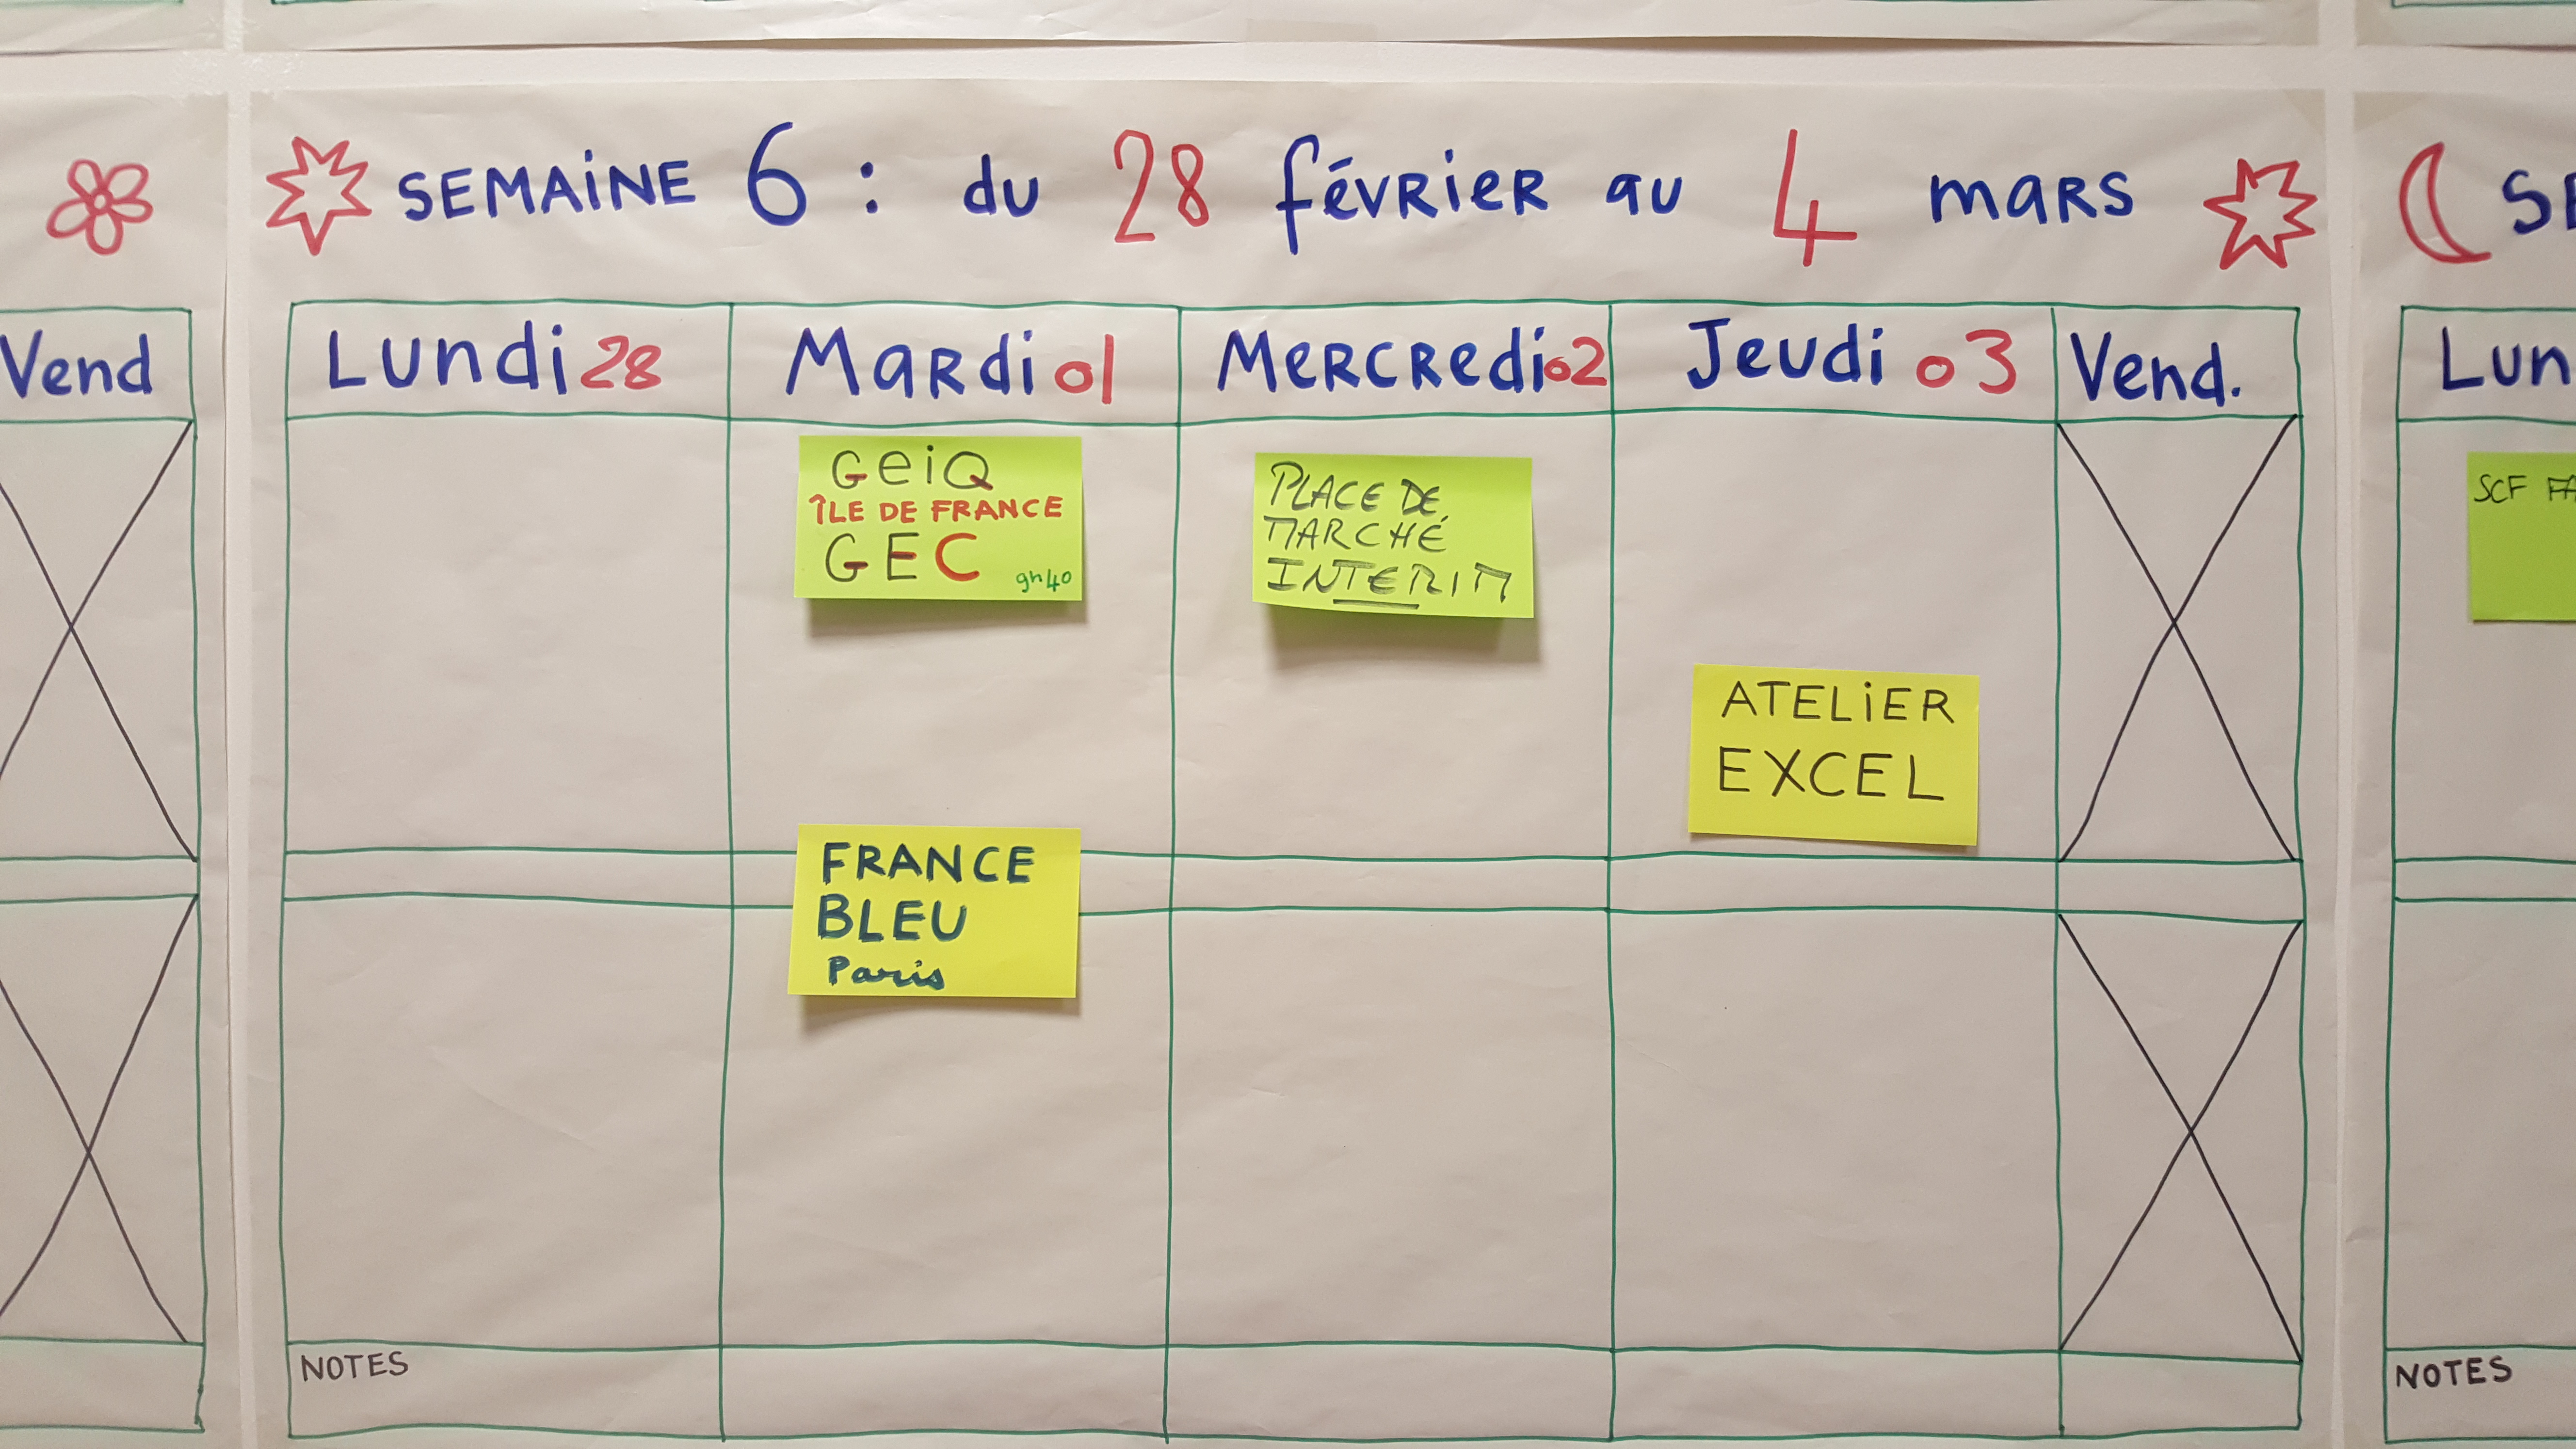 SEMAINE 6 : du 28 février au 4 mars
SE
Vend
Lundi 28
Mardi 01
Mercredi 02
Jeudi 03
Vend.
Lun
GEIQ
ÎLE DE FRANCE
GEC
9h40
PLACE DE
MARCHÉ
INTERIM
SCF FA
ATELIER
EXCEL
FRANCE
BLEU
Paris
NOTES
NOTES